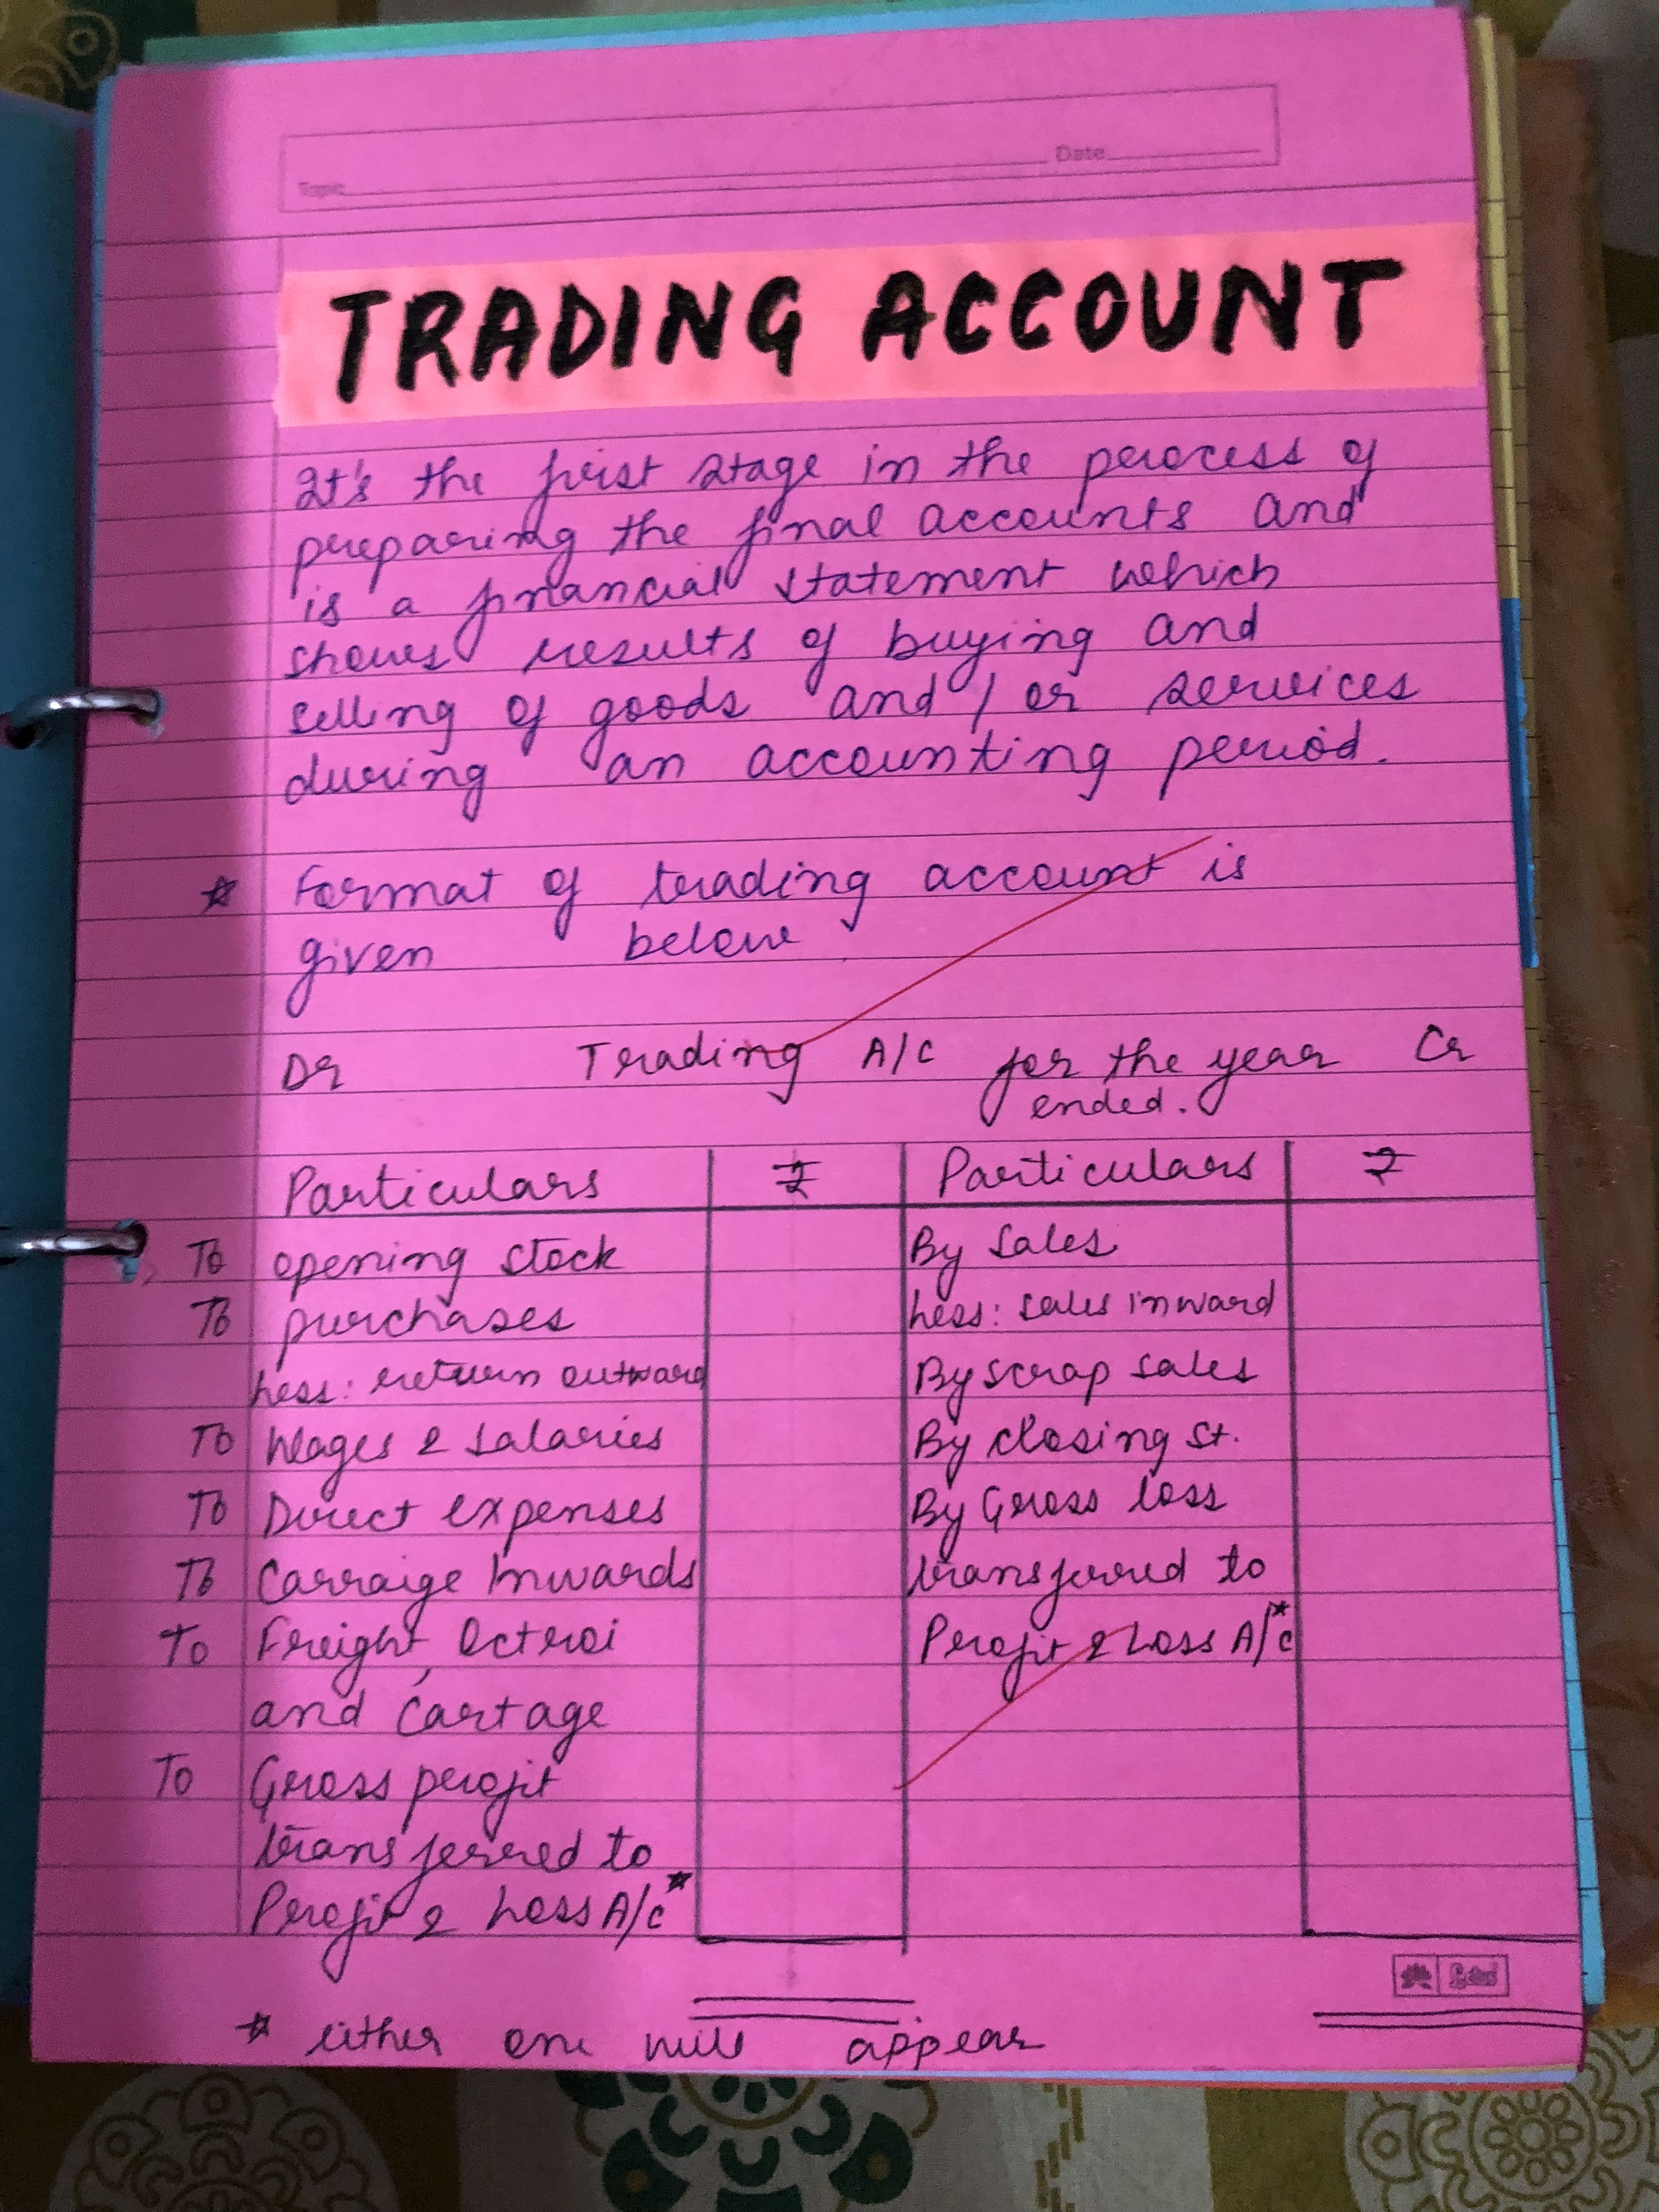 Topic Date
TRADING ACCOUNT
It's the first stage in the process of
preparing the final accounts and
is a financial statement which
shows results of buying and
selling of goods and / or services
during an accounting period.
☆ Format of trading account is
given below
Dr Trading A/C for the year Cr
ended.
Particulars ₹ Particulars ₹
To opening stock By Sales
To purchases Less: sales inward
Less: return outward By scrap sales
To Wages & salaries By closing st.
To Direct expenses By Gross loss
To Carraige Inwards transferred to
To Freight, Octroi Profit & Loss A/c*
and Cartage
To Gross profit
transferred to
Profit & Loss A/c*
☆ either one will appear